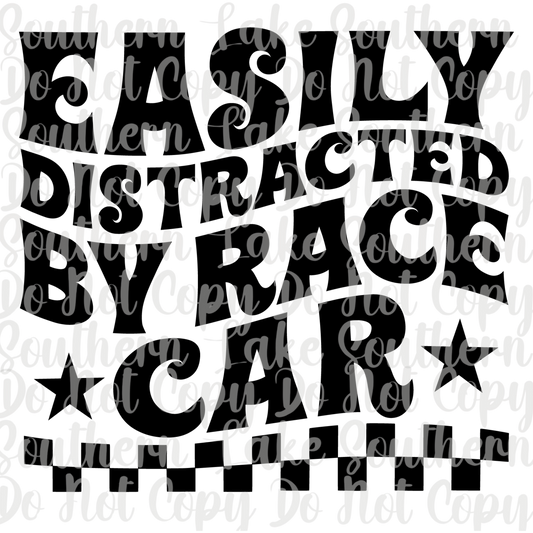 EASILY
DISTRACTED
BY RACE
CAR
Southern Lake Southern
Do Not Copy Do Not Copy
Southern Lake Southern
Do Not Copy Do Not Copy
Southern Lake Southern
Do Not Copy Do Not Copy
Southern Lake Southern
Do Not Copy Do Not Copy
Southern Lake Southern
Do Not Copy Do Not Copy